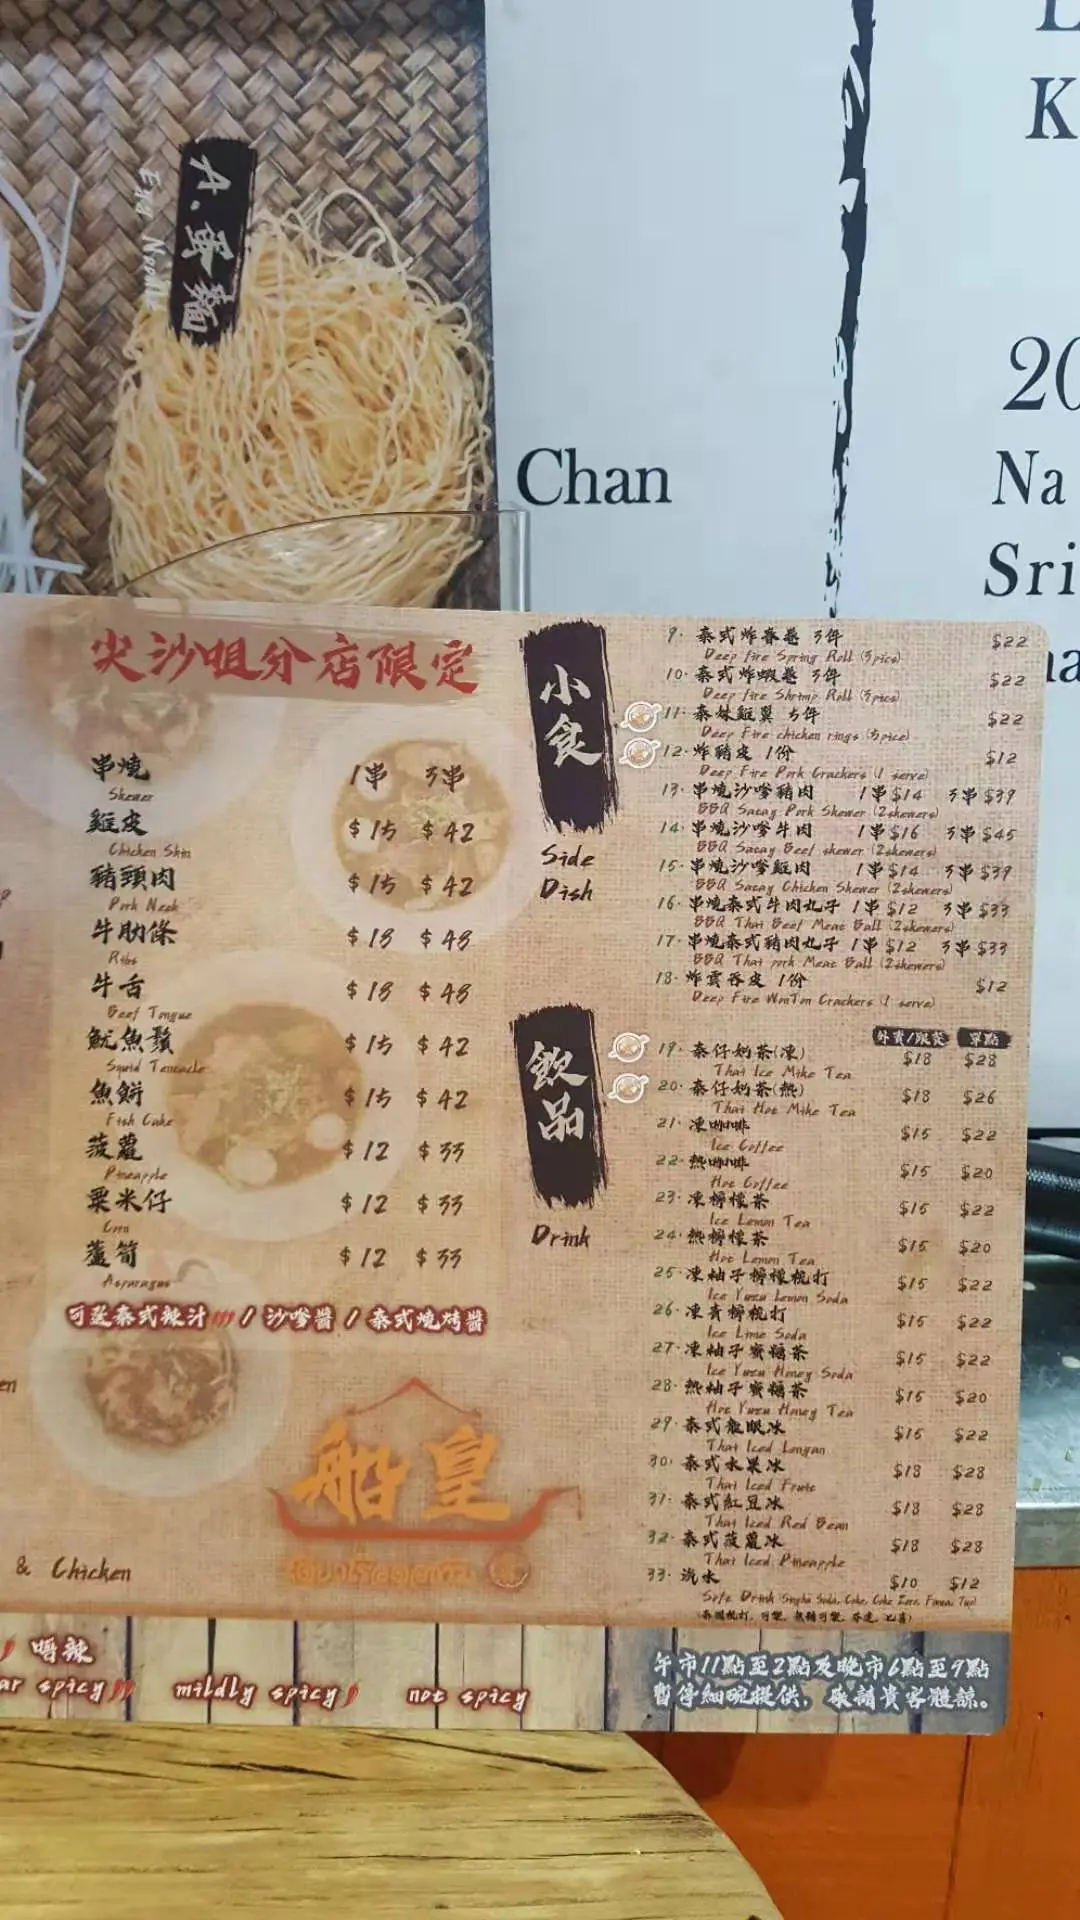 A.蛋麵
Egg Noodle
Chan
K
20
Na
Sri
尖沙咀分店限定
串燒 1串 3串
Skewer
雞皮 $15 $42
Chicken Skin
豬頸肉 $15 $42
Pork Neck
牛肋條 $18 $48
Ribs
牛舌 $18 $48
Beef Tongue
魷魚鬚 $15 $42
Squid Tentacle
魚餅 $15 $42
Fish Cake
菠蘿 $12 $33
Pineapple
粟米仔 $12 $33
Corn
蘆筍 $12 $33
Asparagus
可選泰式辣汁 / 沙嗲醬 / 泰式燒烤醬
船皇
& Chicken
小食
Side
Dish
9. 泰式炸春卷 3件 $22
Deep fire Spring Roll (3pics)
10. 泰式炸蝦卷 3件 $22
Deep fire Shrimp Roll (3pics)
11. 泰妹雞翼 5件 $22
Deep Fire chicken rings (5pice)
12. 炸豬皮 1份 $12
Deep Fire Pork Crackers (1 serve)
13. 串燒沙嗲豬肉 1串$14 3串$39
BBQ Satay Pork Skewer (2skewers)
14. 串燒沙嗲牛肉 1串$16 3串$45
BBQ Satay Beef skewer (2skewers)
15. 串燒沙嗲雞肉 1串$14 3串$39
BBQ Satay Chicken Skewer (2skewers)
16. 串燒泰式牛肉丸子 1串$12 3串$33
BBQ Thai Beef Meat Ball (2skewers)
17. 串燒泰式豬肉丸子 1串$12 3串$33
BBQ Thai pork Meat Ball (2skewers)
18. 炸雲吞皮 1份 $12
Deep Fire WonTon Crackers (1 serve)
飲品
Drink
外賣/跟餐 單點
19. 泰仔奶茶(凍) $18 $28
Thai Ice Milke Tea
20. 泰仔奶茶(熱) $18 $26
Thai Hot Milke Tea
21. 凍咖啡 $15 $22
Ice Coffee
22. 熱咖啡 $15 $20
Hot Coffee
23. 凍檸檬茶 $15 $22
Ice Lemon Tea
24. 熱檸檬茶 $15 $20
Hot Lemon Tea
25. 凍柚子檸檬梳打 $15 $22
Ice Yuzu Lemon Soda
26. 凍青檸梳打 $15 $22
Ice Lime Soda
27. 凍柚子蜜糖茶 $15 $22
Ice Yuzu Honey Soda
28. 熱柚子蜜糖茶 $15 $20
Hot Yuzu Honey Tea
29. 泰式龍眼冰 $15 $22
Thai Iced Longan
30. 泰式水果冰 $18 $28
Thai Iced Fruit
31. 泰式紅豆冰 $18 $28
Thai Iced Red Bean
32. 泰式菠蘿冰 $18 $28
Thai Iced Pineapple
33. 汽水 $10 $12
Soft Drink (Singha Soda, Coke, Coke Zero, Fanta, 7up)
(泰國梳打, 可樂, 無糖可樂, 芬達, 七喜)
唔辣
ar spicy mildly spicy not spicy
午市11點至2點及晚市6點至9點
暫停細碗提供，敬請貴客體諒。